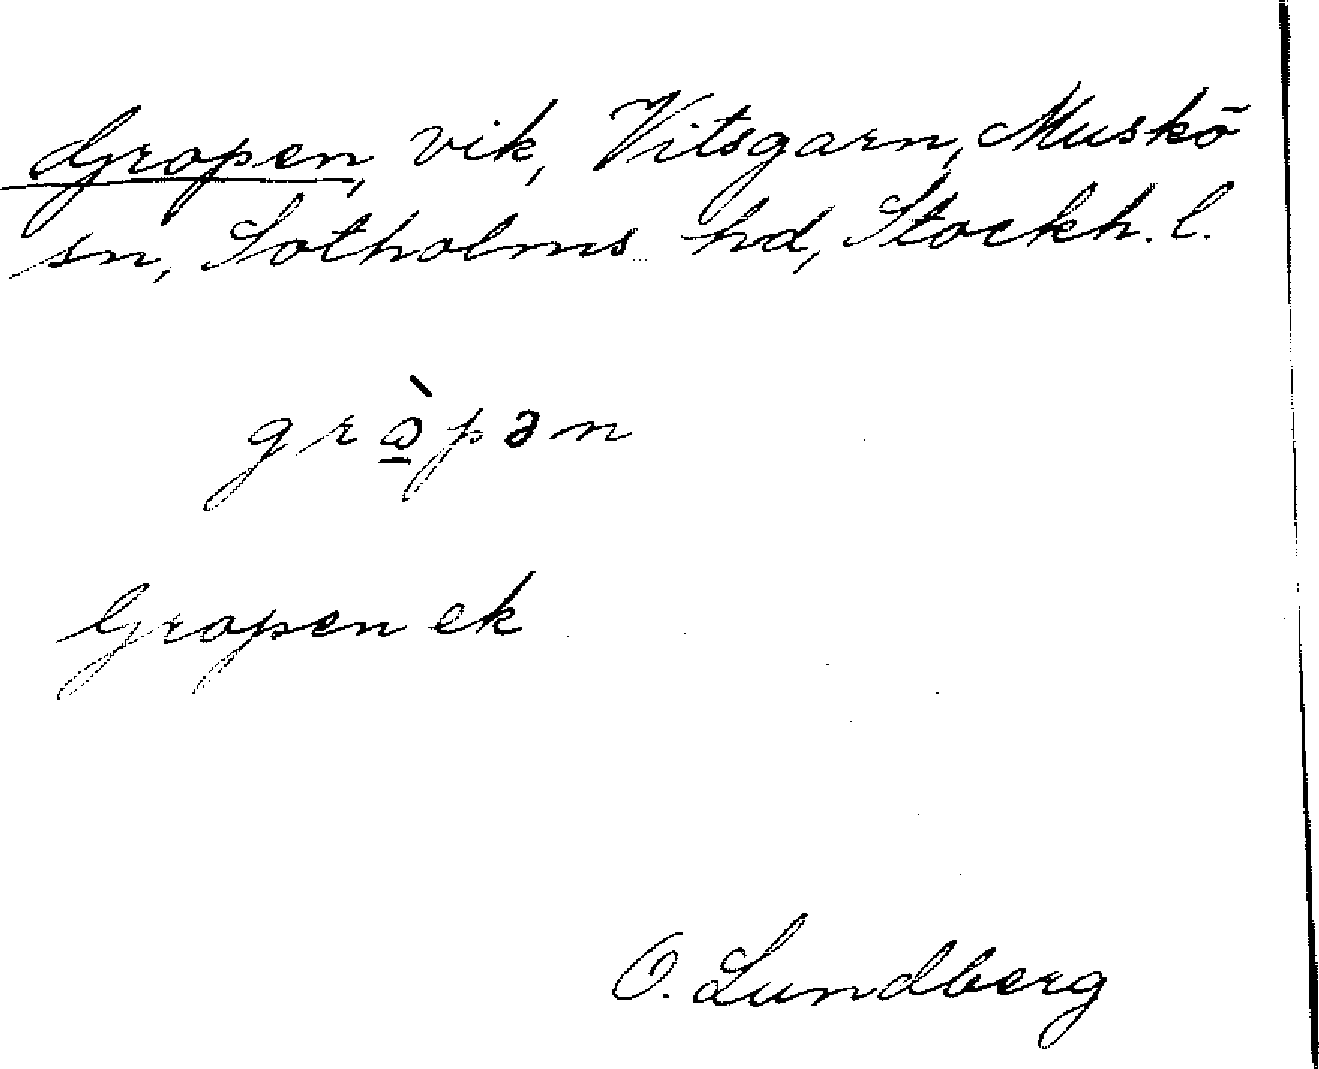 Gropen, vik, Vitsgarn, Muskö
sn, Sotholms hd, Stockh. l.
grò̱pən
Gropen ek
O. Lundberg